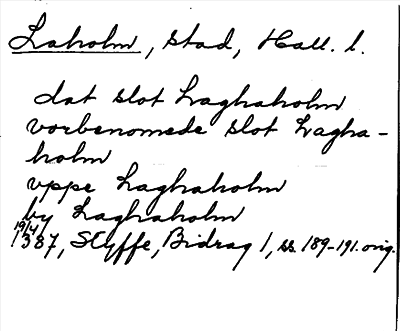 Laholm, stad, Hall. l.
dat slot Laghaholm
vorbenomede slot Lagha-
holm
vppe Laghaholm
by Laghaholm
19/4 1387, Styffe, Bidrag 1, ss. 189-191. orig.